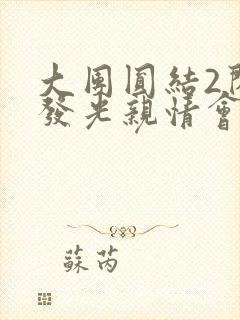 大團圓結2
發光親情會
蘇芮